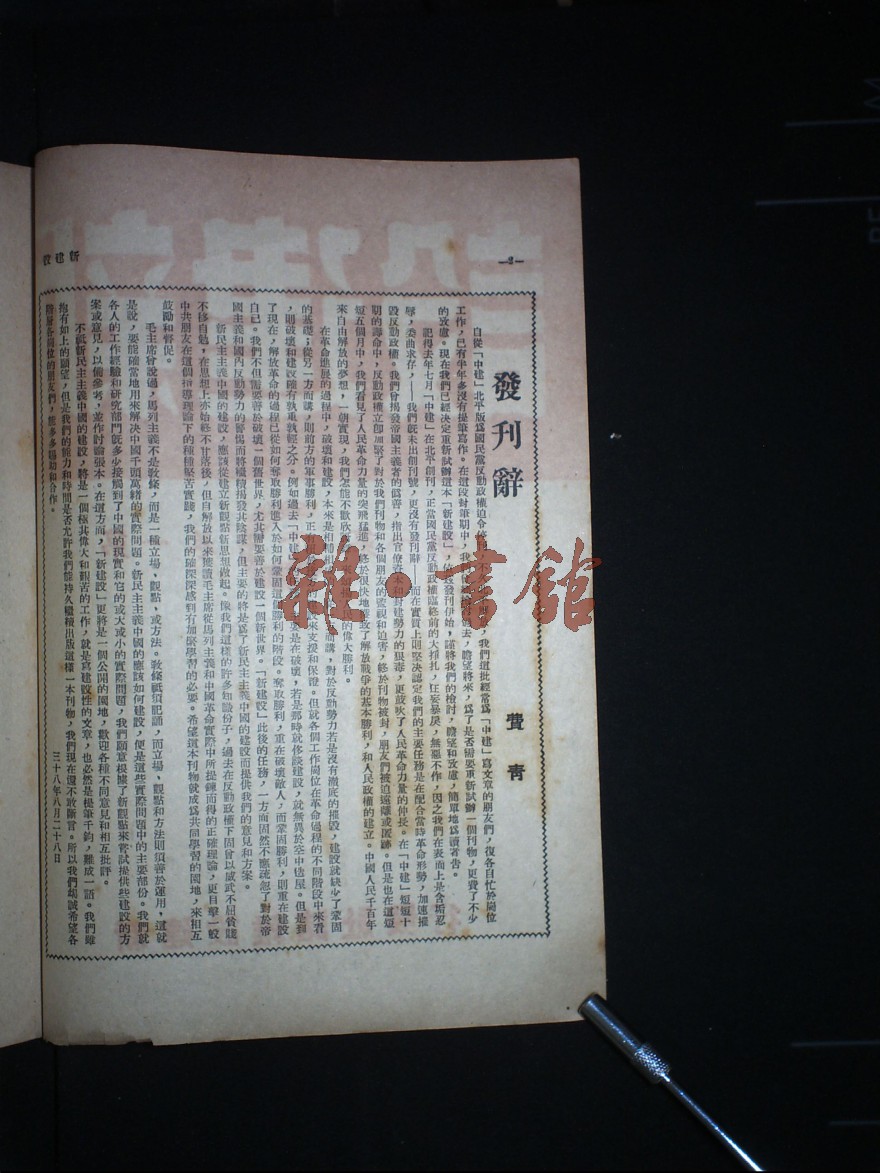 新建設
—2—
發刊辭
費青
自從「中建」北平版為國民黨反動政權迫令停刊，
我們這批經常為「中建」寫文章的朋友們，復各自忙於崗位
工作，已有半年多沒有提筆寫作。在這段封筆期中，我
過去，瞻望將來，為了是否需要重新試辦一個刊物，更費了不少
的攷慮。現在我們已經決定重新試辦這本「新建設」，
發刊伊始，謹將我們的檢討，瞻望和攷慮，簡單地為讀者告。
記得去年七月「中建」在北平創刊，正當國民黨反動政權臨終前的大掙扎，狂妄暴戾，無惡不作，因之我們在表面上是含垢忍
辱，委曲求存，——我們既未出創刊號，更沒有發刊辭——而在實質上則堅決認定我們的主要任務是在配合當時革命形勢，加速摧
毀反動政權。我們曾揭發帝國主義者的偽善，指出官僚資本和封建勢力的狠毒，更鼓吹了人民革命力量的伸長。在「中建」短短十
期的壽命中，反動政權立即加緊了對於我們刊物和各個朋友的監視和迫害，終於刊物被封，朋友們被迫遠離或匿跡。但是也在這短
短五個月中，我們看見了人民革命力量的突飛猛進，終於很快地導致了解放戰爭的基本勝利，和人民政權的建立。中國人民千百年
來自由解放的夢想，一朝實現，我們怎能不歡欣
的偉大勝利。
在革命進展的過程中，破壞和建設，本來是相輔相
而講，對於反動勢力若是沒有徹底的摧毀，建設就缺少了鞏固
的基礎；從另一方面講，則前方的軍事勝利，正
來支援和保證。但就各個工作崗位在革命過程的不同階段中來看
，則破壞和建設確有孰重孰輕之分。例如過去「中建」
要是在破壞，若是那時就侈談建設，就無異於空中造屋。但是到
了現在，解放革命的過程已從如何奪取勝利進入於如何鞏固這個勝利的階段。奪取勝利，重在破壞敵人，而鞏固勝利，則重在建設
自己。我們不但需要善於破壞一個舊世界，尤其需要善於建設一個新世界。「新建設」此後的任務，一方面固然不應疏忽了對於帝
國主義和國內反動勢力的警惕而將繼續揭發其陰謀，但主要的將是為了新民主主義中國的建設而提供我們的意見和方案。
新民主主義中國的建設，應該從建立新觀點新思想做起。像我們這樣的許多知識份子，過去在反動政權下固曾以威武不屈貧賤
不移自勉，在思想上亦始終不甘落後，但自解放以來獲讀毛主席從馬列主義和中國革命實際中所提鍊而得的正確理論，更目擊一般
中共朋友在這個指導理論下的種種堅苦實踐，我們的確深深感到有加緊學習的必要。希望這本刊物就成為共同學習的園地，來相互
鼓勵和督促。
毛主席曾說過，馬列主義不是敎條，而是一種立場，觀點，或方法。敎條祇須記誦，而立場，觀點和方法則須善於運用，這就
是說，要能確當地用來解決中國千頭萬緒的實際問題。新民主主義中國的應該如何建設，便是這些實際問題中的主要部份。我們就
各人的工作經驗和研究部門旣多少接觸到了中國的現實和它的或大或小的實際問題，我們願意根據了新觀點來嘗試提供些建設的方
案或意見，以備參考，並作討論張本。在這方面，「新建設」更將是一個公開的園地，歡迎各種不同意見和相互批評。
不祇新民主主義中國的建設，將是一個極其偉大和艱苦的工作，就是寫建設性的文章，也必然是提筆千鈞，難成一語。我們雖
抱有如上的願望，但是我們的能力和時間是否允許我們能持久繼續出版這樣一本刊物，我們現在還不敢斷言。所以我們竭誠希望各
階層各崗位的朋友們，能多多協助和合作。
三十八年八月二十八日
雜·書館